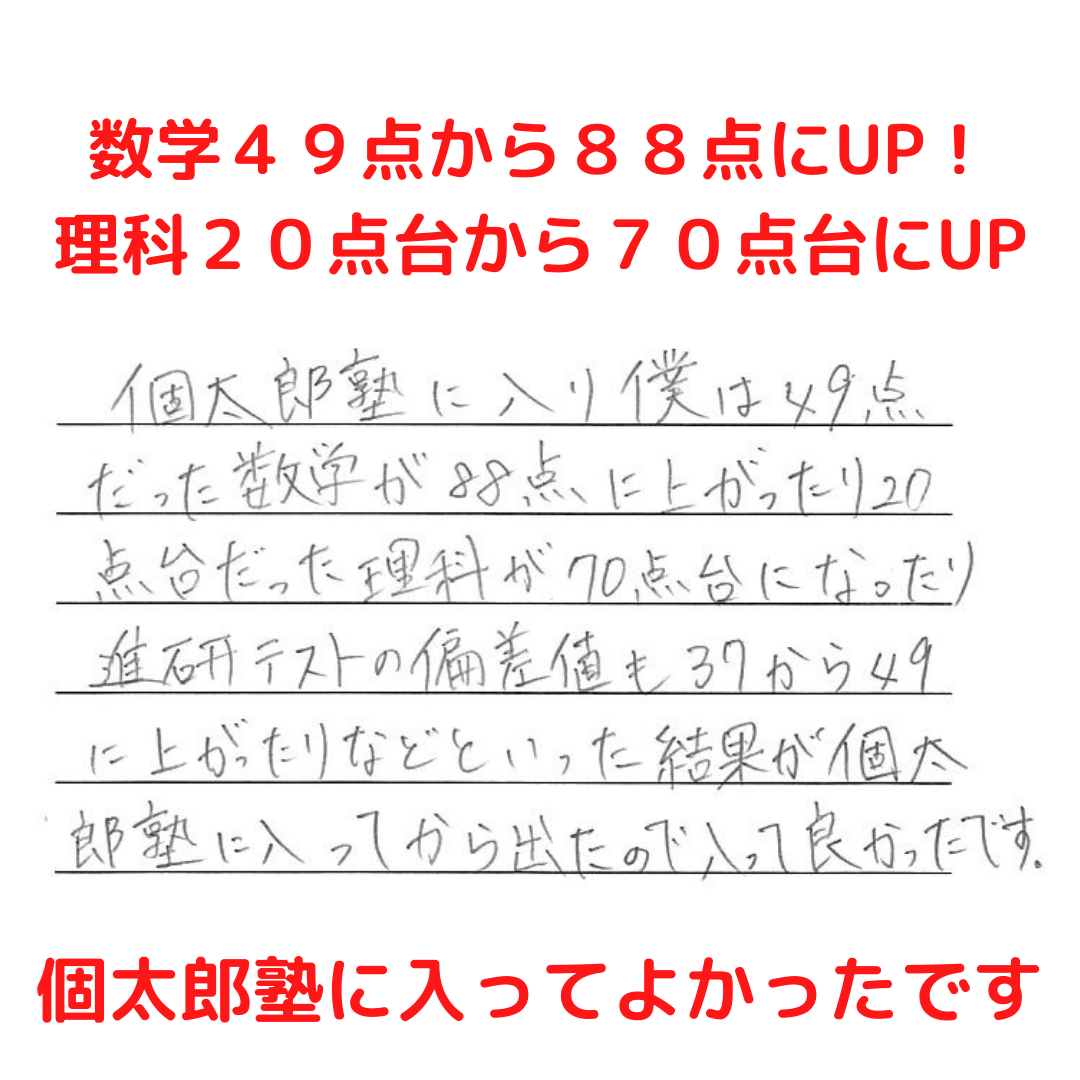 数学４９点から８８点にUP！
理科２０点台から７０点台にUP
個太郎塾に入り僕は49点
だった数学が88点に上がったり20
点台だった理科が70点台になったり
進研テストの偏差値も37から49
に上がったりなどといった結果が個太
郎塾に入ってから出たので入って良かったです。
個太郎塾に入ってよかったです